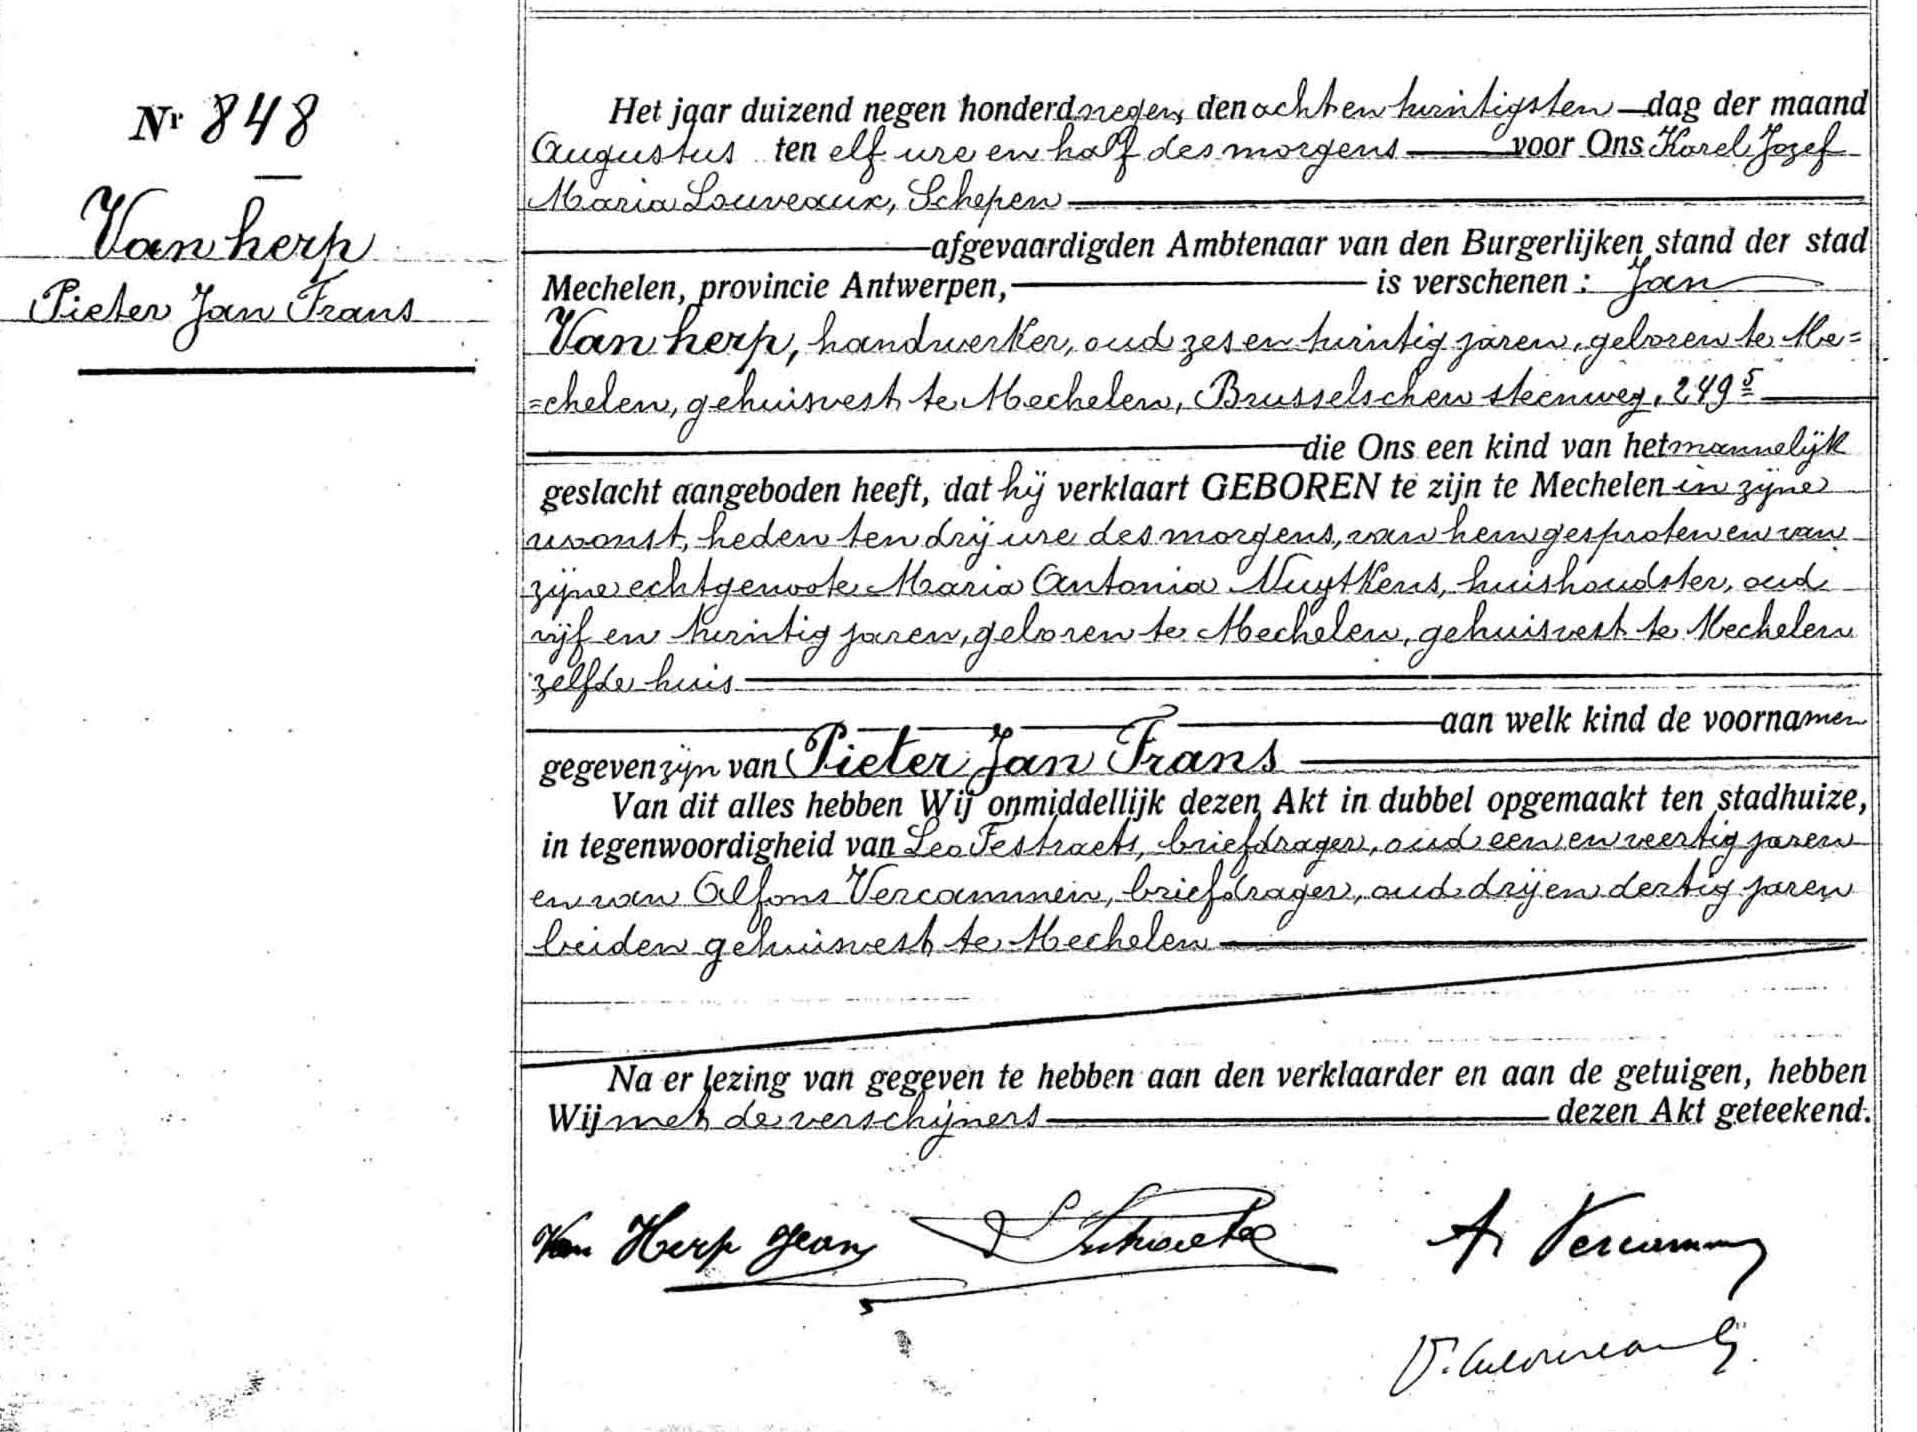 Nr 848
Van herp
Pieter Jan Frans
Het jaar duizend negen honderd negen, den acht en twintigsten dag der maand
Augustus ten elf ure en half des morgens voor Ons Karel Jozef
Maria Louveaux, Schepen
afgevaardigden Ambtenaar van den Burgerlijken stand der stad
Mechelen, provincie Antwerpen, is verschenen : Jan
Van herp, handwerker, oud zes en twintig jaren, geboren te Me=
=chelen, gehuisvest te Mechelen, Brusselschen steenweg, 249 5
die Ons een kind van het mannelijk
geslacht aangeboden heeft, dat hij verklaart GEBOREN te zijn te Mechelen in zijne
woonst, heden ten drij ure des morgens, van hem gesproten en van
zijne echtgenoote Maria Antonia Nuytkens, huishoudster, oud
vijf en twintig jaren, geboren te Mechelen, gehuisvest te Mechelen
zelfde huis
aan welk kind de voornamen
gegeven zijn van Pieter Jan Frans
Van dit alles hebben Wij onmiddellijk dezen Akt in dubbel opgemaakt ten stadhuize,
in tegenwoordigheid van Leo Festraets, briefdrager, oud een en veertig jaren
en van Alfons Vercammen, briefdrager, oud drij en dertig jaren
beiden gehuisvest te Mechelen
Na er lezing van gegeven te hebben aan den verklaarder en aan de getuigen, hebben
Wij met de verschijners dezen Akt geteekend.
Van Herp Jean
A Vercammen